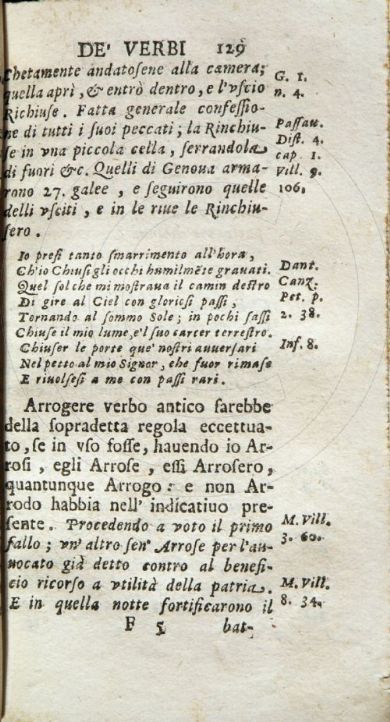 DE' VERBI 129
Chetamente andatosene alla camera;
quella aprì, & entrò dentro, e l'vscio
Richiuse. Fatta generale confessio-
ne di tutti i suoi peccati; la Rinchiu-
se in vna piccola cella, serrandola
di fuori &c. Quelli di Genoua arma-
rono 27. galee, e seguirono quelle
delli vsciti, e in le riue le Rinchiu-
sero.
G. 1.
n. 4.
Passau.
Dist. 4.
cap 1.
Vill. 9.
106.
Io presi tanto smarrimento all'hora,
Ch'io Chiusi gli occhi humilmẽte grauati.
Quel sol che mi mostraua il camin destro
Di gire al Ciel con gloriosi passi,
Tornando al sommo Sole; in pochi sassi
Chiuse il mio lume, e'l suo carcer terrestro.
Chiuser le porte que' nostri auuersari
Nel petto al mio Signor, che fuor rimase
E riuolsesi a me con passi rari.
Dant.
Canz.
Pet. p.
2. 38.
Inf. 8.
Arrogere verbo antico sarebbe
della sopradetta regola eccettua-
to, se in vso fosse, hauendo io Ar-
rosi, egli Arrose, essi Arrosero,
quantunque Arrogo: e non Ar-
rodo habbia nell' indicatiuo pre-
sente. Procedendo a voto il primo
fallo; vn' altro sen' Arrose per l'au-
uocato già detto contro al benefi-
cio ricorso a vtilità della patria.
E in quella notte fortificarono il
M. Vill.
3. 60.
M. Vill.
8. 34.
F 5 bat-